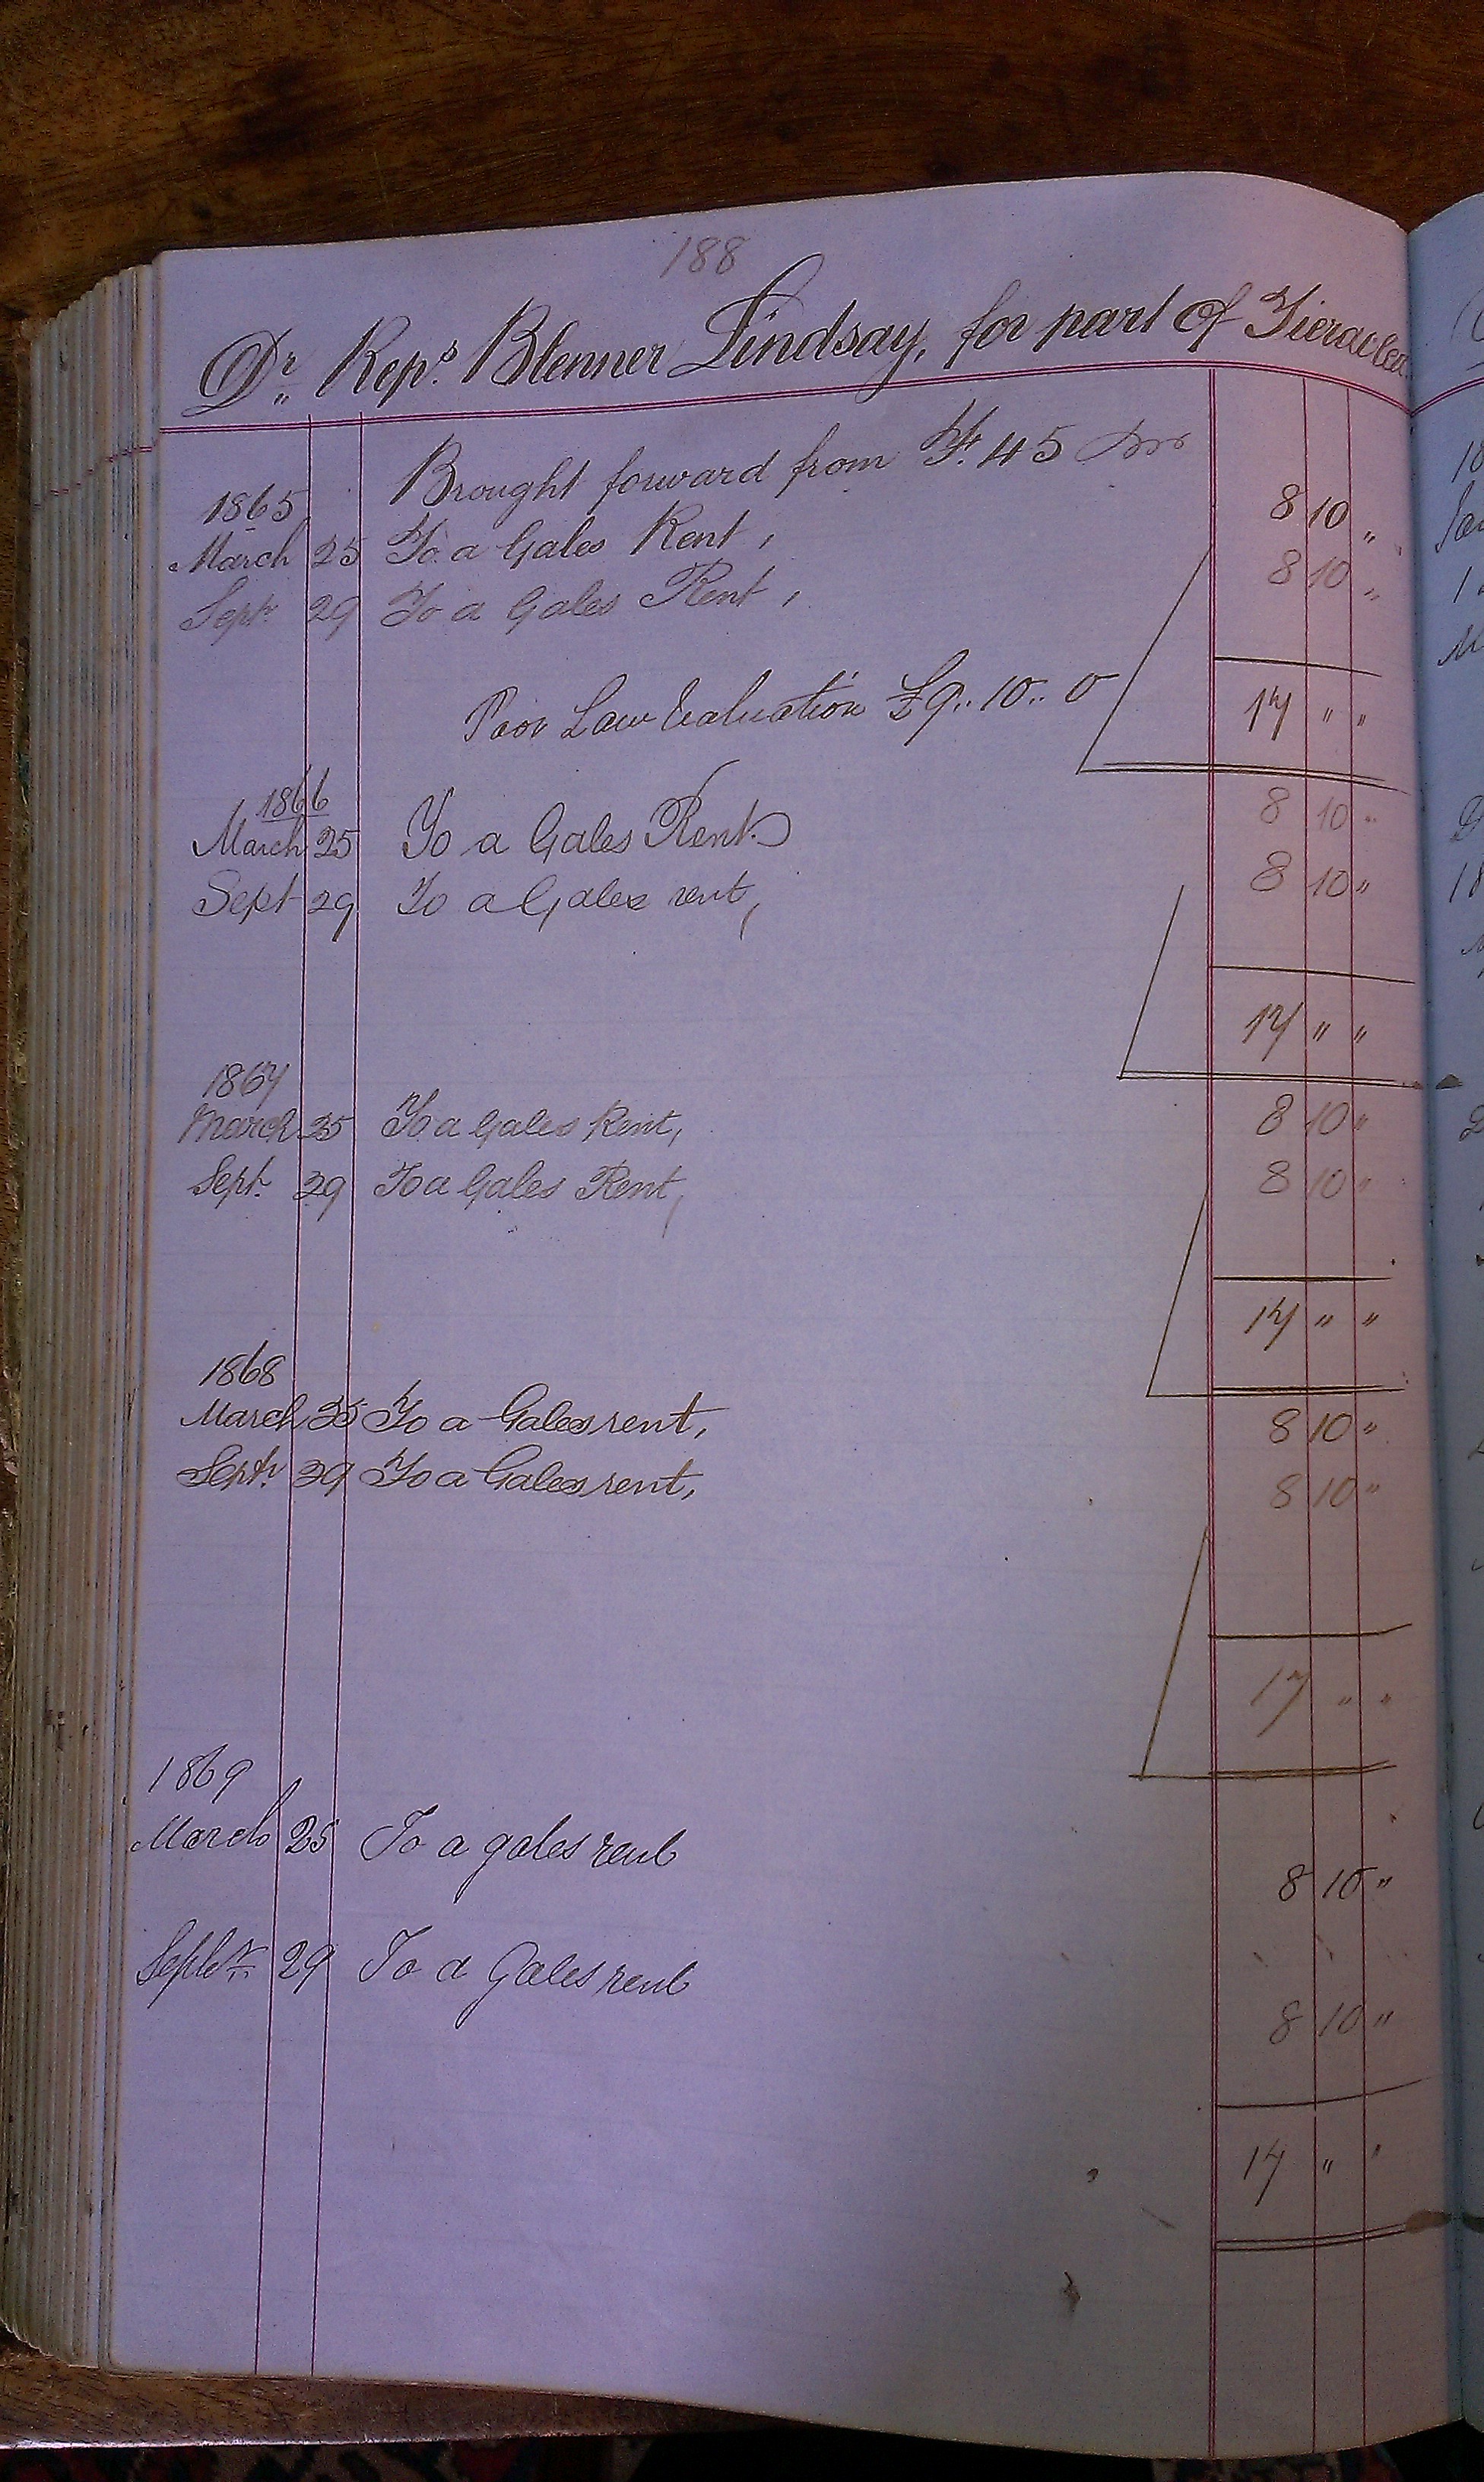 188
Dr. Reps. Blenner Lindsay, for part of Tieraclea
Brought forward from F. 45
1865
March 25 To a Gales Rent, 8 10 "
Sept. 29 To a Gales Rent, 8 10 "
Poor Law Valuation £9.. 10.. 0 17 " "
1866
March 25 To a Gales Rent 8 10 "
Sept 29 To a Gales rent, 8 10 "
17 " "
1867
March 25 To a Gales Rent, 8 10 "
Sept. 29 To a Gales Rent, 8 10 "
17 " "
1868
March 25 To a Gales rent, 8 10 "
Septr. 29 To a Gales rent, 8 10 "
17 " "
1869
March 25 To a gales rent 8 10 "
Septr. 29 To a Gales rent 8 10 "
17 " "